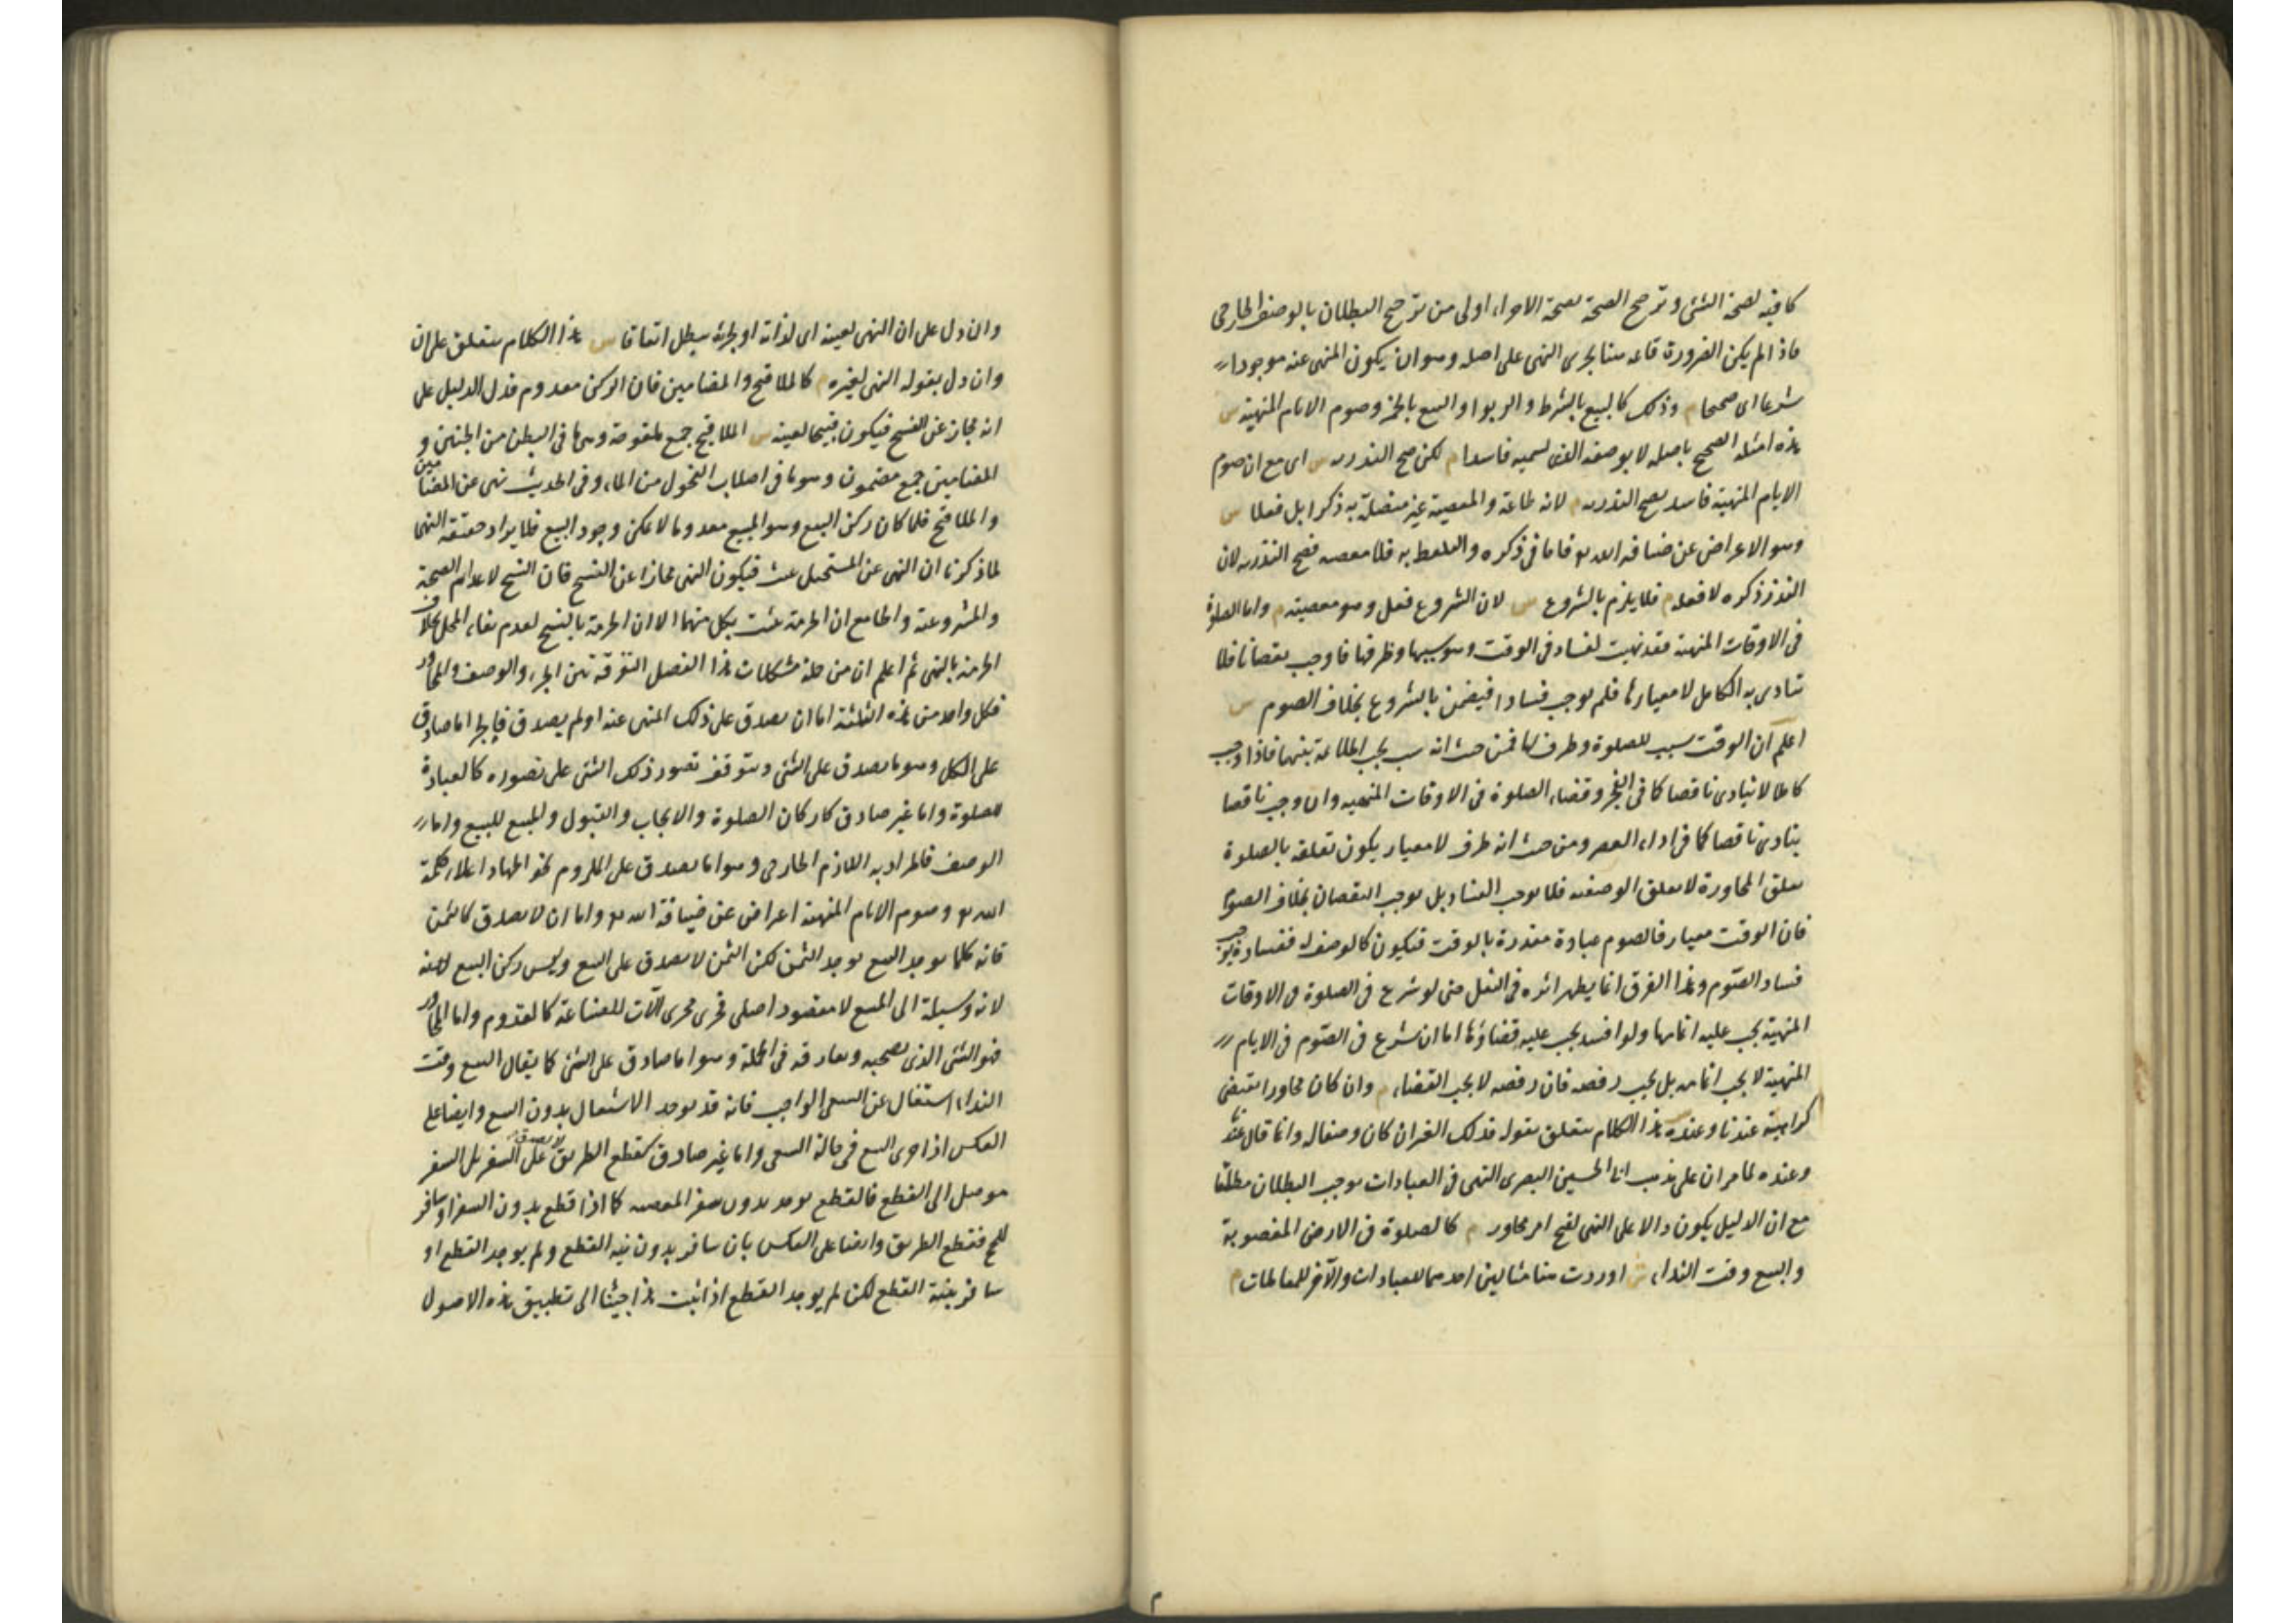 كافية لصحة الشئ وترجيح الصحة بصحة الاجزاء اولى من ترجيح البطلان بالوصف الخارجى
فاذا لم يكن الضرورة قائمة هنا يجرى النهى على اصله وهو ان يكون المنهى عنه موجودا
شرعا اى صحيحا م وذلك كالبيع بالشرط والربوا والبيع بالخمر وصوم الايام المنهية س
هذه امثلة الصحيح باصله لا بوصفه الذى نسميه فاسدا م لكن صح النذر به س اى مع ان صوم
الايام المنهية فاسد يصح النذر به م لانه طاعة والمعصية غير متصلة به ذكرا بل فعلا س
وهو الاعراض عن ضيافة الله تع فاما فى ذكره والتلفظ به فلا معصية فصح النذر به لان
النذر ذكره لا فعله م فلا يلزم بالشروع س لان الشروع فعل وهو معصية م واما الصلوة
فى الاوقات المنهية فقد نهيت لفساد فى الوقت وهو سببها وظرفها فاوجب نقصانا فلا
تتادى به الكامل لا معيارها فلم يوجب فسادا فيضمن بالشروع بخلاف الصوم س
اعلم ان الوقت سبب للصلوة وظرف لها فمن حيث انه سبب يجب الملائمة بينهما فاذا وجب
كاملا لا يتادى ناقصا كما فى الفجر وقضاء الصلوة فى الاوقات المنهية وان وجب ناقصا
يتادى ناقصا كما فى اداء العصر ومن حيث انه ظرف لا معيار يكون تعلقه بالصلوة
تعلق المجاورة لا تعلق الوصفية فلا يوجب الفساد بل يوجب النقصان بخلاف الصوم
فان الوقت معيار فالصوم عبادة مقدرة بالوقت فيكون كالوصف له ففساده يوجب
فساد الصوم وهذا الفرق انما يظهر اثره فى النفل حتى لو شرع فى الصلوة فى الاوقات
المنهية يجب عليه اتمامها ولو افسد يجب عليه قضاؤها اما ان شرع فى الصوم فى الايام
المنهية لا يجب اتمامه بل يجب رفضه فان رفضه لا يجب القضاء م وان كان مجاورا يقتضى
كراهية عندنا وعنده س هذا الكلام يتعلق بقوله فذلك الغير ان كان وصفا له وانما قال عندنا
وعنده لما مر ان على مذهب ابى الحسين البصرى النهى فى العبادات يوجب البطلان مطلقا
مع ان الدليل يكون دالا على النهى لقبح امر مجاور م كالصلوة فى الارض المغصوبة
والبيع وقت النداء ش اوردت هنا مثالين احدهما للعبادات والآخر للمعاملات م
وان دل على ان النهى لعينه اى لذاته او لجزئه يبطل اتفاقا س هذا الكلام يتعلق على ان
وان دل بقوله النهى لغيره م كالملاقيح والمضامين فان الركن معدوم فدل الدليل على
انه مجاز عن النسخ فيكون قبيحا لعينه س الملاقيح جمع ملقوحة وهى ما فى البطن من الجنين و
المضامين جمع مضمون وهو ما فى اصلاب الفحول من الماء وفى الحديث نهى عن المضامين
والملاقيح فلما كان ركن البيع وهو المبيع معدوما لا يمكن وجود البيع فلا يراد حقيقة النهى
لما ذكرنا ان النهى عن المستحيل عبث فيكون النهى مجازا عن النسخ فان النسخ لاعدام الصحة
والمشروعية والجامع ان الحرمة تثبت بكل منهما الا ان الحرمة بالنسخ لعدم بقاء المحل بخلاف
الحرمة بالنهى ثم اعلم ان من جملة مشكلات هذا الفصل التفرقة بين الجزء والوصف والمجاور
فكل واحد من هذه الثلثة اما ان يصدق على ذلك المنهى عنه او لم يصدق فالجزء اما صادق
على الكل وهو ما يصدق على الشئ ويتوقف تصور ذلك الشئ على تصوره كالعبادة
للصلوة واما غير صادق كاركان الصلوة والايجاب والقبول والمبيع للبيع واما
الوصف فالمراد به اللازم الخارجى وهو اما يصدق على الملزوم نحو الجهاد اعلاء كلمة
الله تع وصوم الايام المنهية اعراض عن ضيافة الله تع واما ان لا يصدق كالثمن
فانه كلما يوجد البيع يوجد الثمن لكن الثمن لا يصدق على البيع وليس ركن البيع
لانه وسيلة الى المبيع لا مقصود اصلى فجرى مجرى آلات الصناعة كالقدوم واما المجاور
فهو الشئ الذى يصحبه ويفارقه فى الجملة وهو اما صادق على الشئ كما يقال البيع وقت
النداء اشتغال عن السعى الواجب فانه قد يوجد الاشتغال بدون البيع وايضا على
العكس اذا جرى البيع فى حالة السعى واما غير صادق كقطع الطريق لا يصدق على السفر بل السفر
موصل الى القطع فالقطع يوجد بدون سفر المعصية كما اذا قطع بدون السفر او سافر
للحج فقطع الطريق وايضا على العكس بان سافر بدون نية القطع ولم يوجد القطع او
سافر بنية القطع لكن لم يوجد القطع اذا ثبت هذا جئنا الى تطبيق هذه الاصول